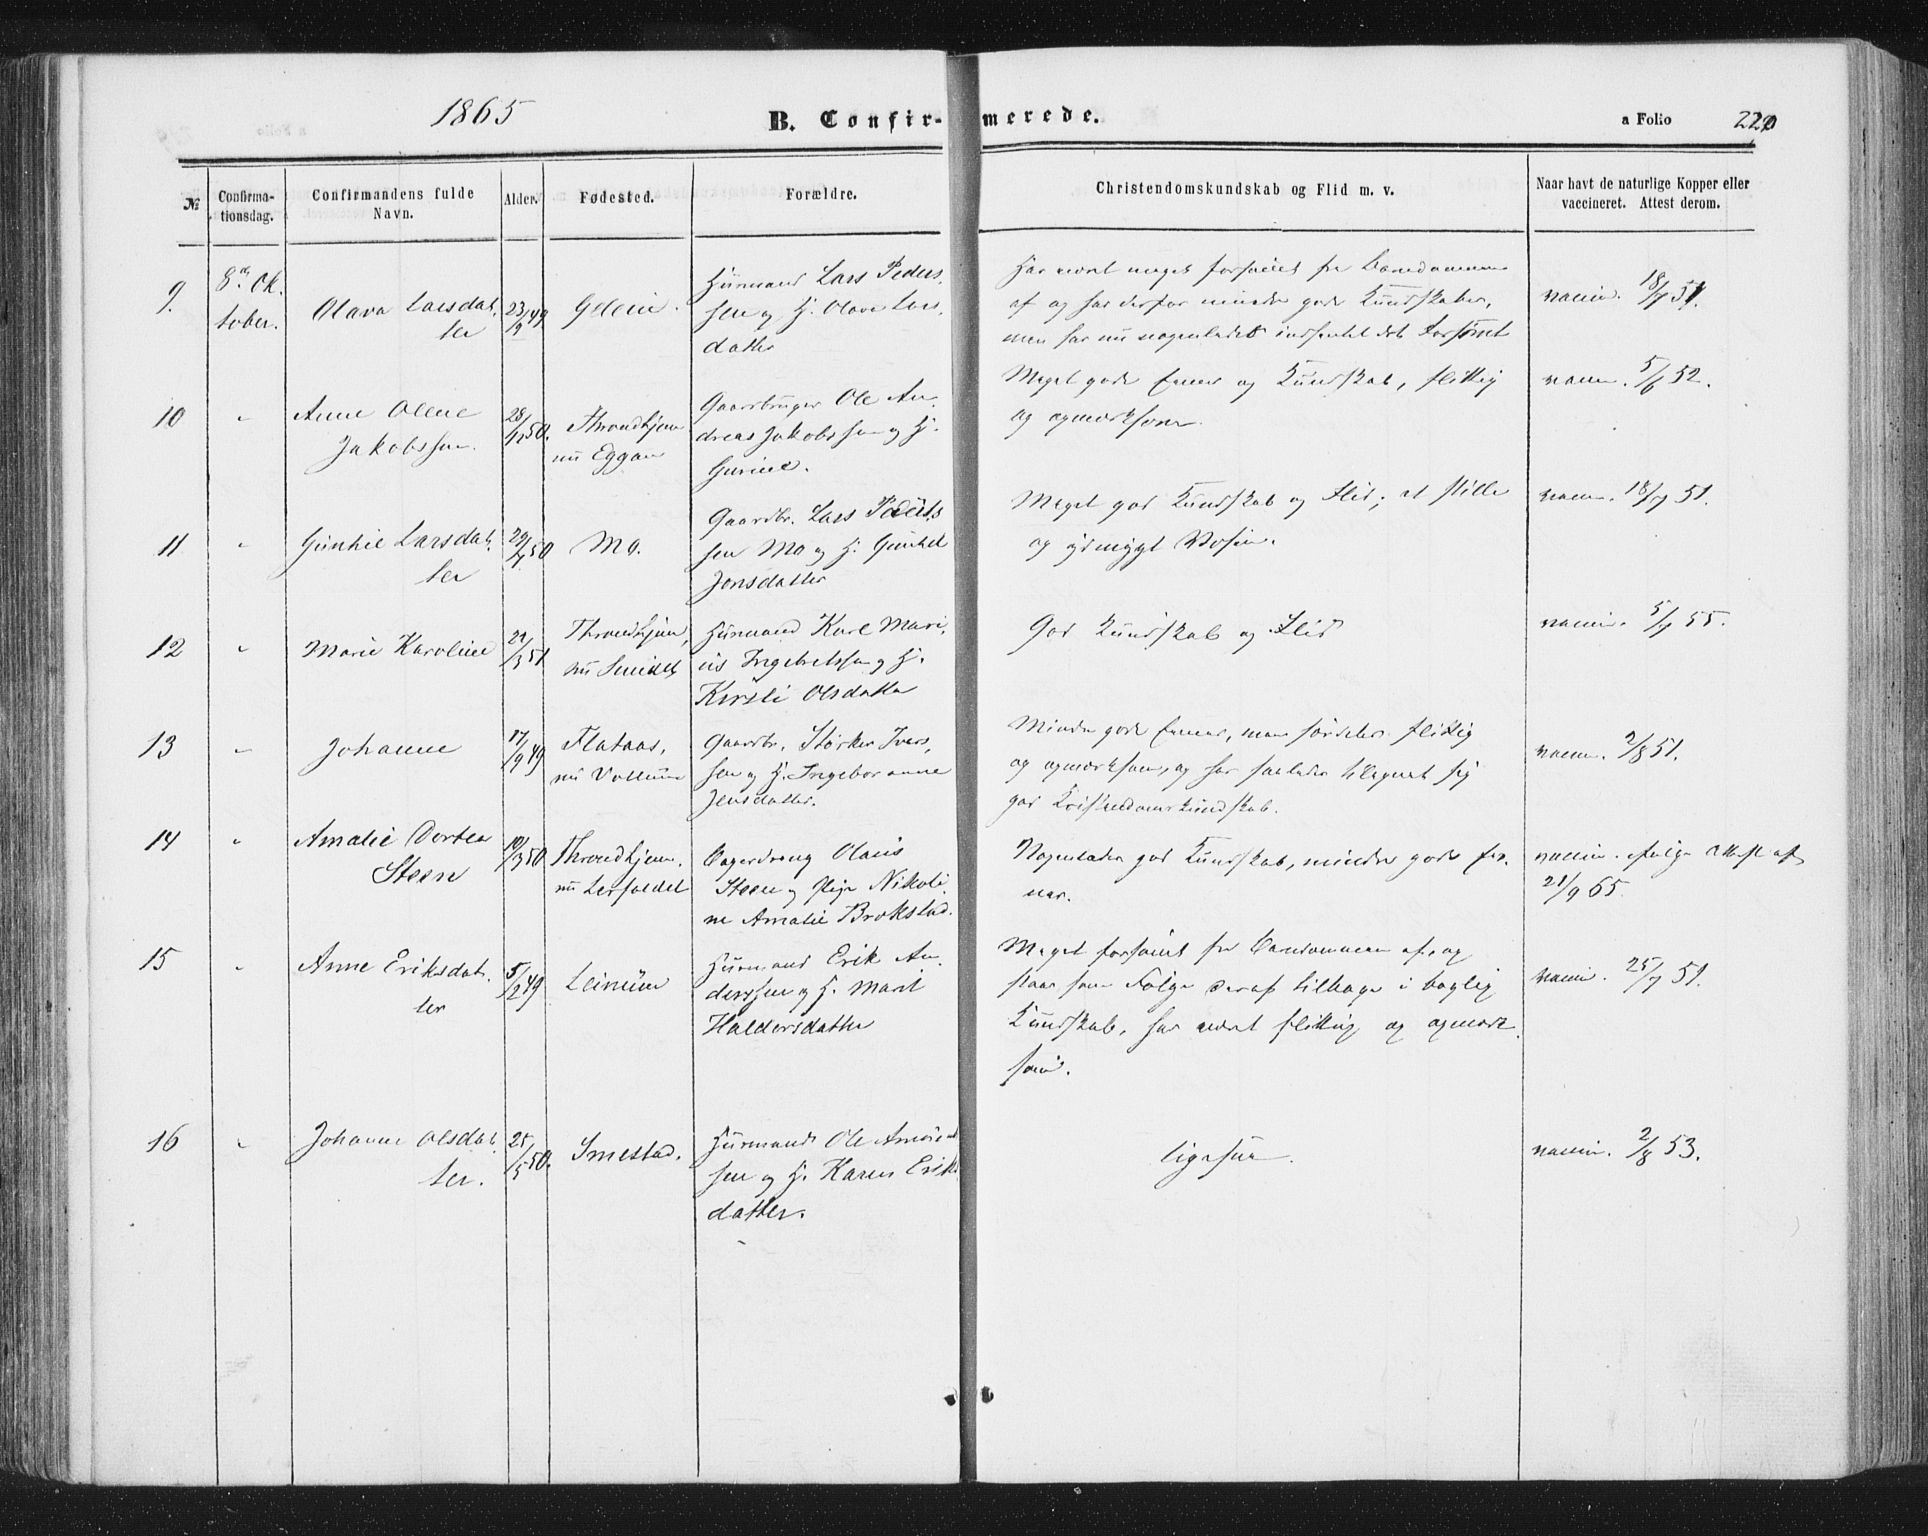 1865
B. Confirmerede.
a Folio
220
№
Confirmationsdag.
Confirmandens fulde Navn.
Alder.
Fødested.
Forældre.
Christendomskundskab og Flid m. v.
Naar havt de naturlige Kopper eller vaccineret. Attest derom.
9.
8de Ok.
tober.
Olava Larsdat,
ter
23/9 49
Huusmand Lars Peders,
sen og H. Olava Lars,
datter
Har været meget forsømt fra Barndommen
af og har derfor mindre gode Kundskaber,
men har nu nogenledes indhentet det Forsømte
vaccin. 18/7 51.
10
"
Anne Oline
Jakobssen.
28/12 50.
Throndhjem
nu Eggan
Gaardbruger Ole An,
dreas Jakobssen og H.
Gurine.
Meget gode Evner og Kundskab, flittig
og opmærksom.
vaccin. 5/6 52.
11
"
Gunhil Larsdat,
ter
29/7 50
Mo.
Gaardbr. Lars Peders,
sen Mo og H. Gunhil
Jonsdatter
Meget god Kundskab og Flid; et stille
og ydmygt Væsen.
vaccin. 18/7 51.
12
"
Marie Karoline
29/3 51
Throndhjem,
nu
Huusmand Karl Mari,
us Ingebretssen og H.
Kirsti Olsdatter
God Kundskab og Flid
vaccin. 5/7 55.
13
"
Johanne
17/9 49
Flataas,
nu Vollum
Gaardbr. Størker Ivers,
sen og H. Ingeboranne
Jensdatter.
Mindre gode Evner, men særdeles flittig
og opmærksom, og har saaledes tilegnet sig
god Kristendomskundskab.
vaccin. 2/8 51.
14
"
Amalie Dortea
Steen
10/3 50
Throndhjem.
nu Lerfaldet
Bagerdreng Olaus
Steen og Pige Nikoli,
ne Amalie Brokstad.
Nogenledes god Kundskab, mindre gode Ev,
ner.
vaccin. ifølge Attest af
21/9 65.
15
"
Anne Eriksdat,
ter
5/2 49
Leinum
Huusmand Erik An,
derssen og H. Marit
Haldorsdatter
Meget forsømt fra Barndommen af, og
staar som Følge deraf tilbage i boglig
Kundskab, har været flittig og opmærk,
som.
vaccin. 25/7 51.
16
"
Johanne Olsdat,
ter.
25/5 50.
Smestad.
Huusmand Ole
sen og H. Karen Eriks
datter.
ligesaa.
vaccin. 2/8 53.